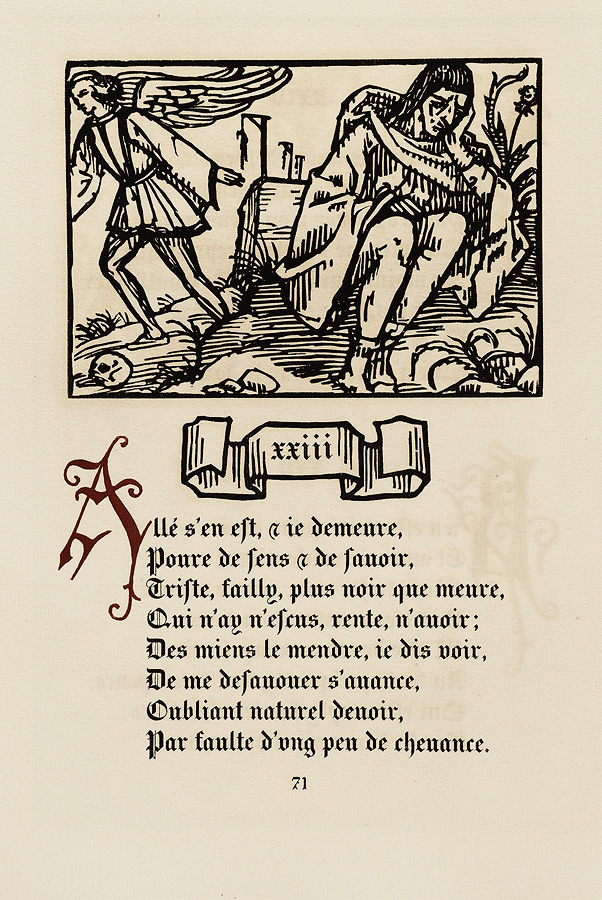 xxiii
Allé s'en eſt, ⁊ ie demeure,
Poure de ſens ⁊ de ſauoir,
Triſte, failly, plus noir que meure,
Qui n'ay n'eſcus, rente, n'auoir;
Des miens le mendre, ie dis voir,
De me deſauouer s'auance,
Oubliant naturel deuoir,
Par faulte d'vng peu de cheuance.
71